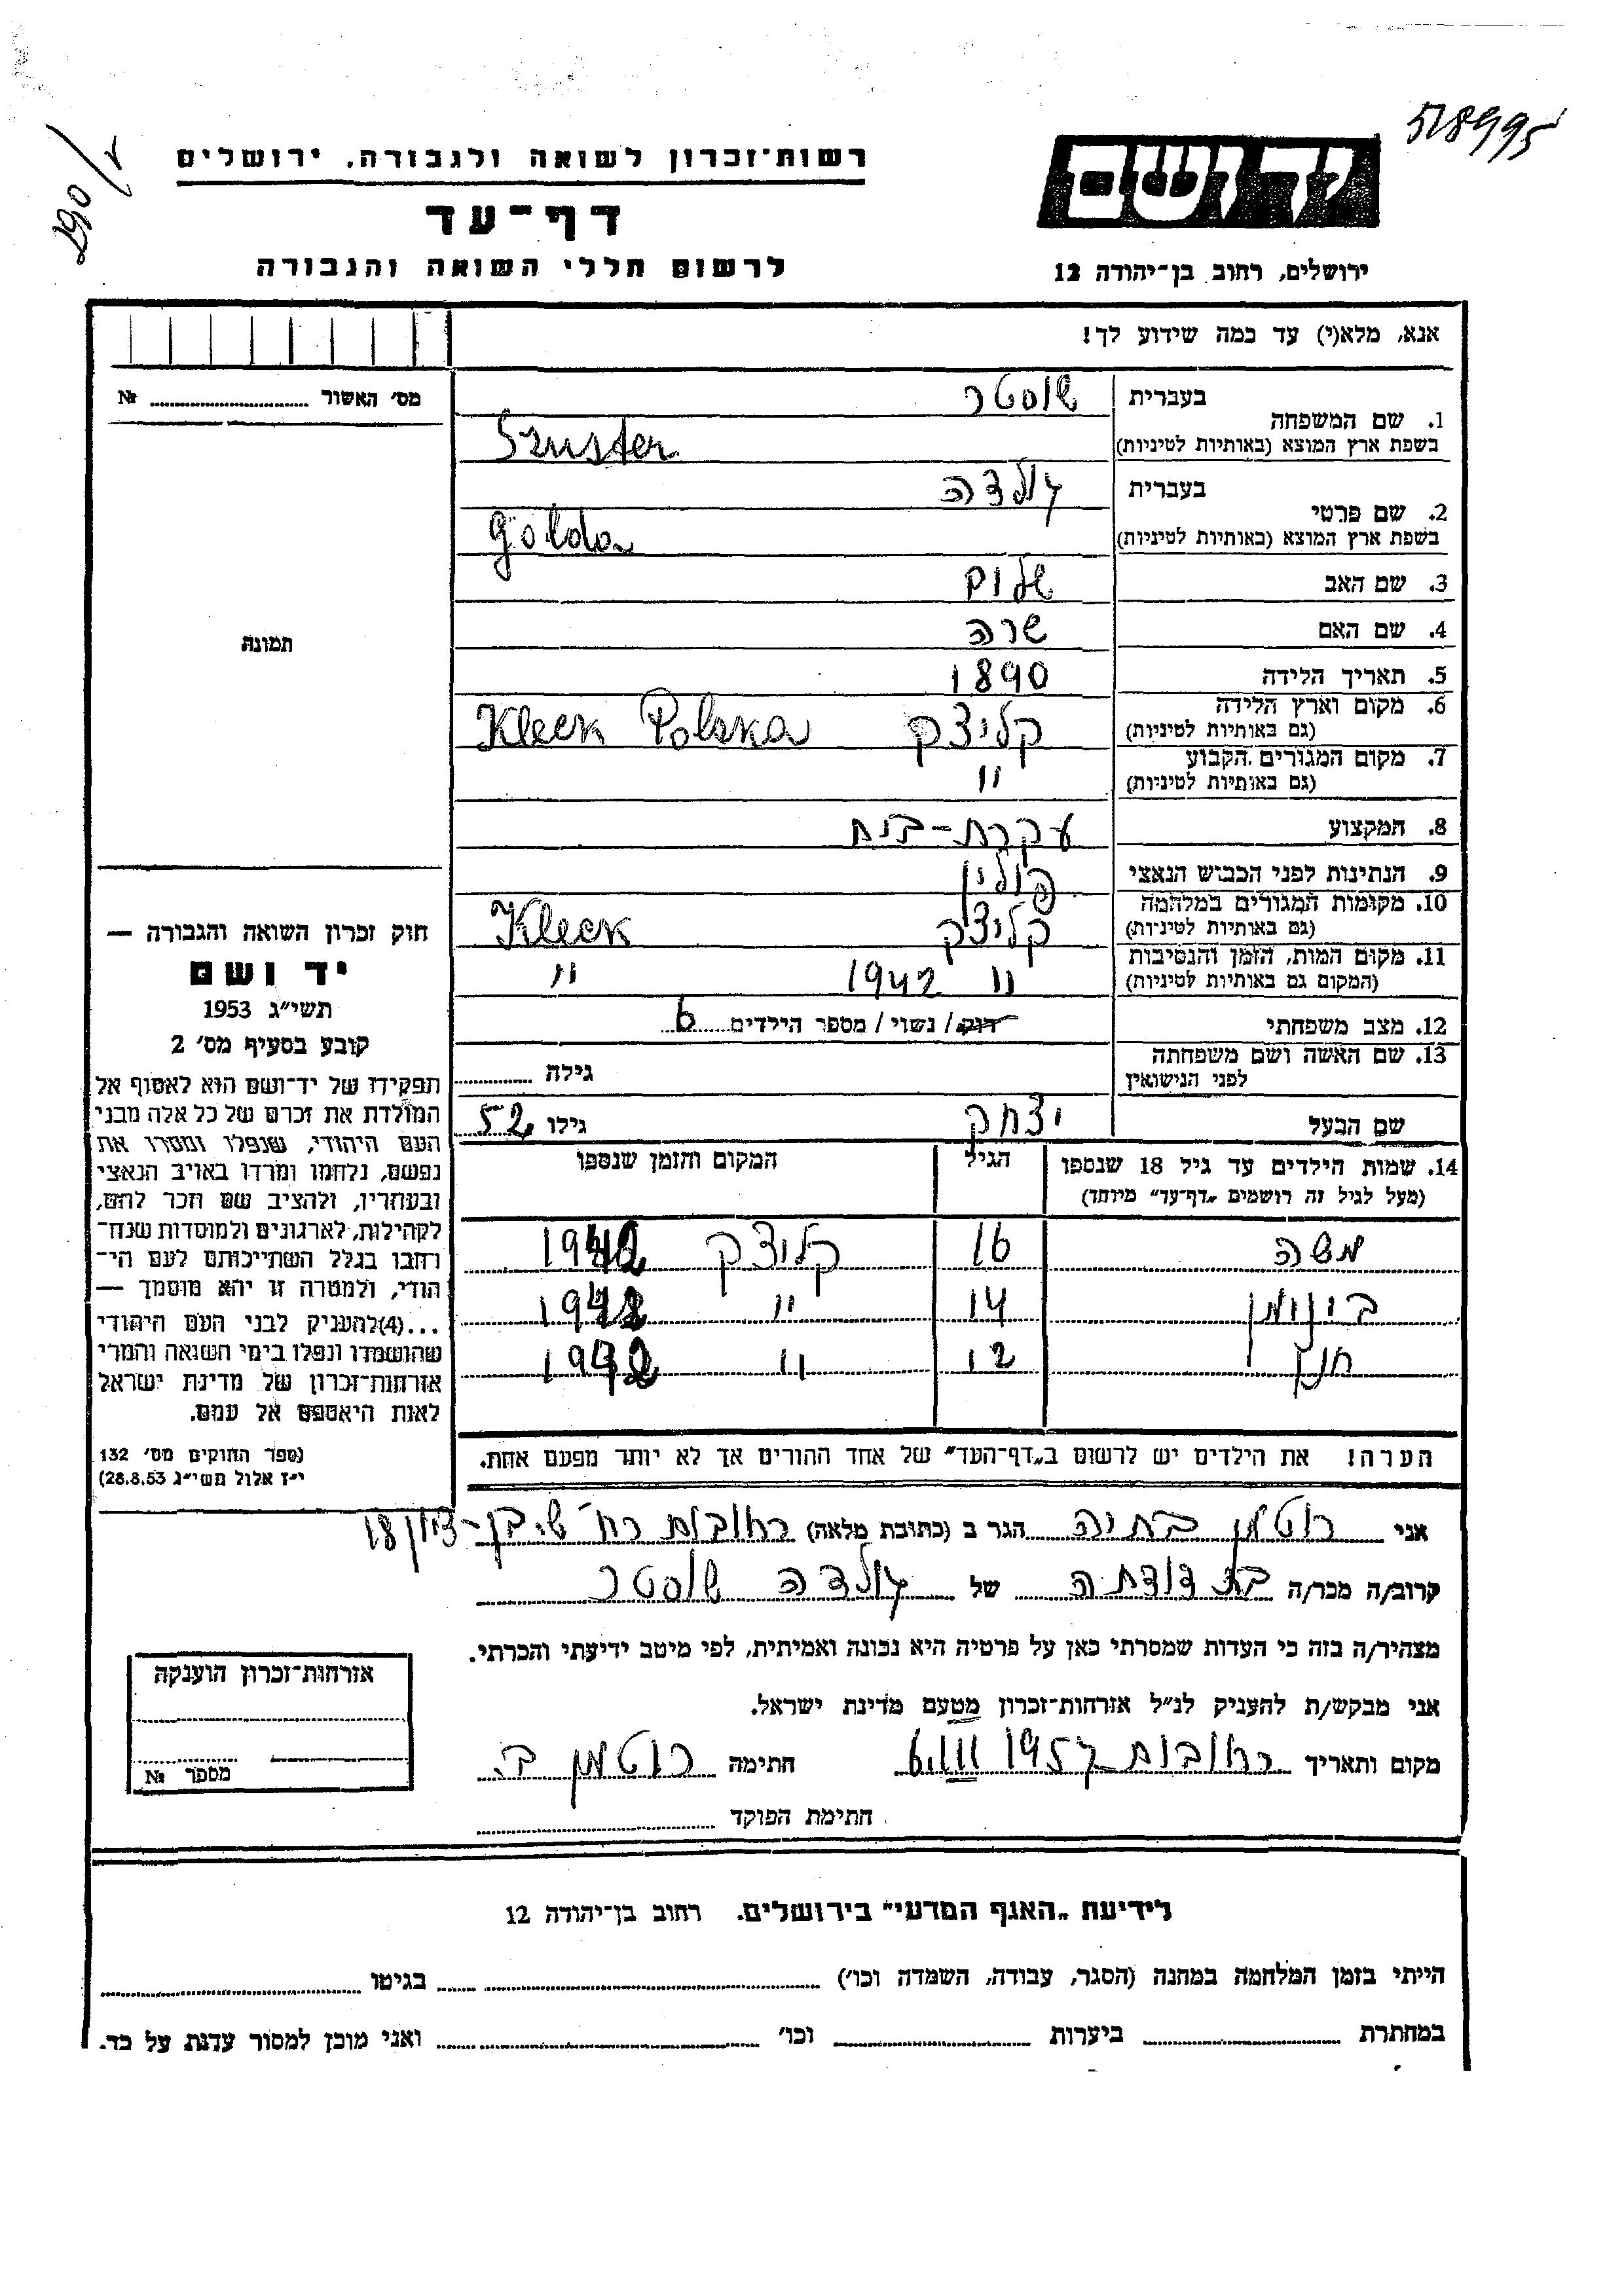 518995
290/ר
רשות־זכרון לשואה ולגבורה, ירושלים
יד ושם
דף־עד
לרשום חללי השואה והגבורה
ירושלים, רחוב בן־יהודה 12
אנא, מלא(י) עד כמה שידוע לך!
מס׳ האשור № 
1. שם המשפחה בעברית שוסטר
בשפת ארץ המוצא (באותיות לטיניות) Szuster
2. שם פרטי בעברית גולדה
בשפת ארץ המוצא (באותיות לטיניות) Golda
3. שם האב שלום
4. שם האם שרה
5. תאריך הלידה 1890
6. מקום וארץ הלידה (גם באותיות לטיניות) קליצק Kleck Polska
7. מקום המגורים הקבוע (גם באותיות לטיניות) "
8. המקצוע עקרת-בית
9. הנתינות לפני הכבוש הנאצי פולין
10. מקומות המגורים במלחמה (גם באותיות לטיניות) קליצק Kleck
11. מקום המות, הזמן והנסיבות (המקום גם באותיות לטיניות) " 1942 "
12. מצב משפחתי רוק/ נשוי/ מספר הילדים 6
13. שם האשה ושם משפחתה לפני הנישואין גילה
שם הבעל יצחק גילו 52
14. שמות הילדים עד גיל 18 שנספו הגיל המקום והזמן שנספו
(מעל לגיל זה רושמים „דף־עד" מיוחד)
משה 16 קליצק 1942
בינימין 14 " 1942
חנן 12 " 1942
הערה! את הילדים יש לרשום ב„דף־העד" של אחד ההורים אך לא יותר מפעם אחת.
תמונה
חוק זכרון השואה והגבורה —
יד ושם
תשי״ג 1953
קובע בסעיף מס׳ 2
תפקידו של יד־ושם הוא לאסוף אל
המולדת את זכרם של כל אלה מבני
העם היהודי, שנפלו ומסרו את
נפשם, נלחמו ומרדו באויב הנאצי
ובעוזריו, ולהציב שם וזכר להם,
לקהילות, לארגונים ולמוסדות שנח־
רבו בגלל השתייכותם לעם הי־
הודי, ולמטרה זו יהא מוסמך —
...(4)להעניק לבני העם היהודי
שהושמדו ונפלו בימי השואה והמרי
אזרחות־זכרון של מדינת ישראל
לאות היאספם אל עמם.
(ספר החוקים מס׳ 132
י״ז אלול תשי״ג 28.8.53)
אני רוטמן בתיה הגר ב (כתובת מלאה) רחובות רח׳ ש. בן-ציון 18
קרוב/ה מכר/ה בת דודתה של גולדה שוסטר
מצהיר/ה בזה כי העדות שמסרתי כאן על פרטיה היא נכונה ואמיתית, לפי מיטב ידיעתי והכרתי.
אני מבקש/ת להעניק לנ״ל אזרחות־זכרון מטעם מדינת ישראל.
מקום ותאריך רחובות 6.III 1957 חתימה רוטמן ב.
חתימת הפוקד
אזרחות־זכרון הוענקה
מספר №
לידיעת „האגף המדעי" בירושלים. רחוב בן־יהודה 12
הייתי בזמן המלחמה במחנה (הסגר, עבודה, השמדה וכו׳) בגיטו
במחתרת ביערות וכו׳ ואני מוכן למסור עדות על כך.